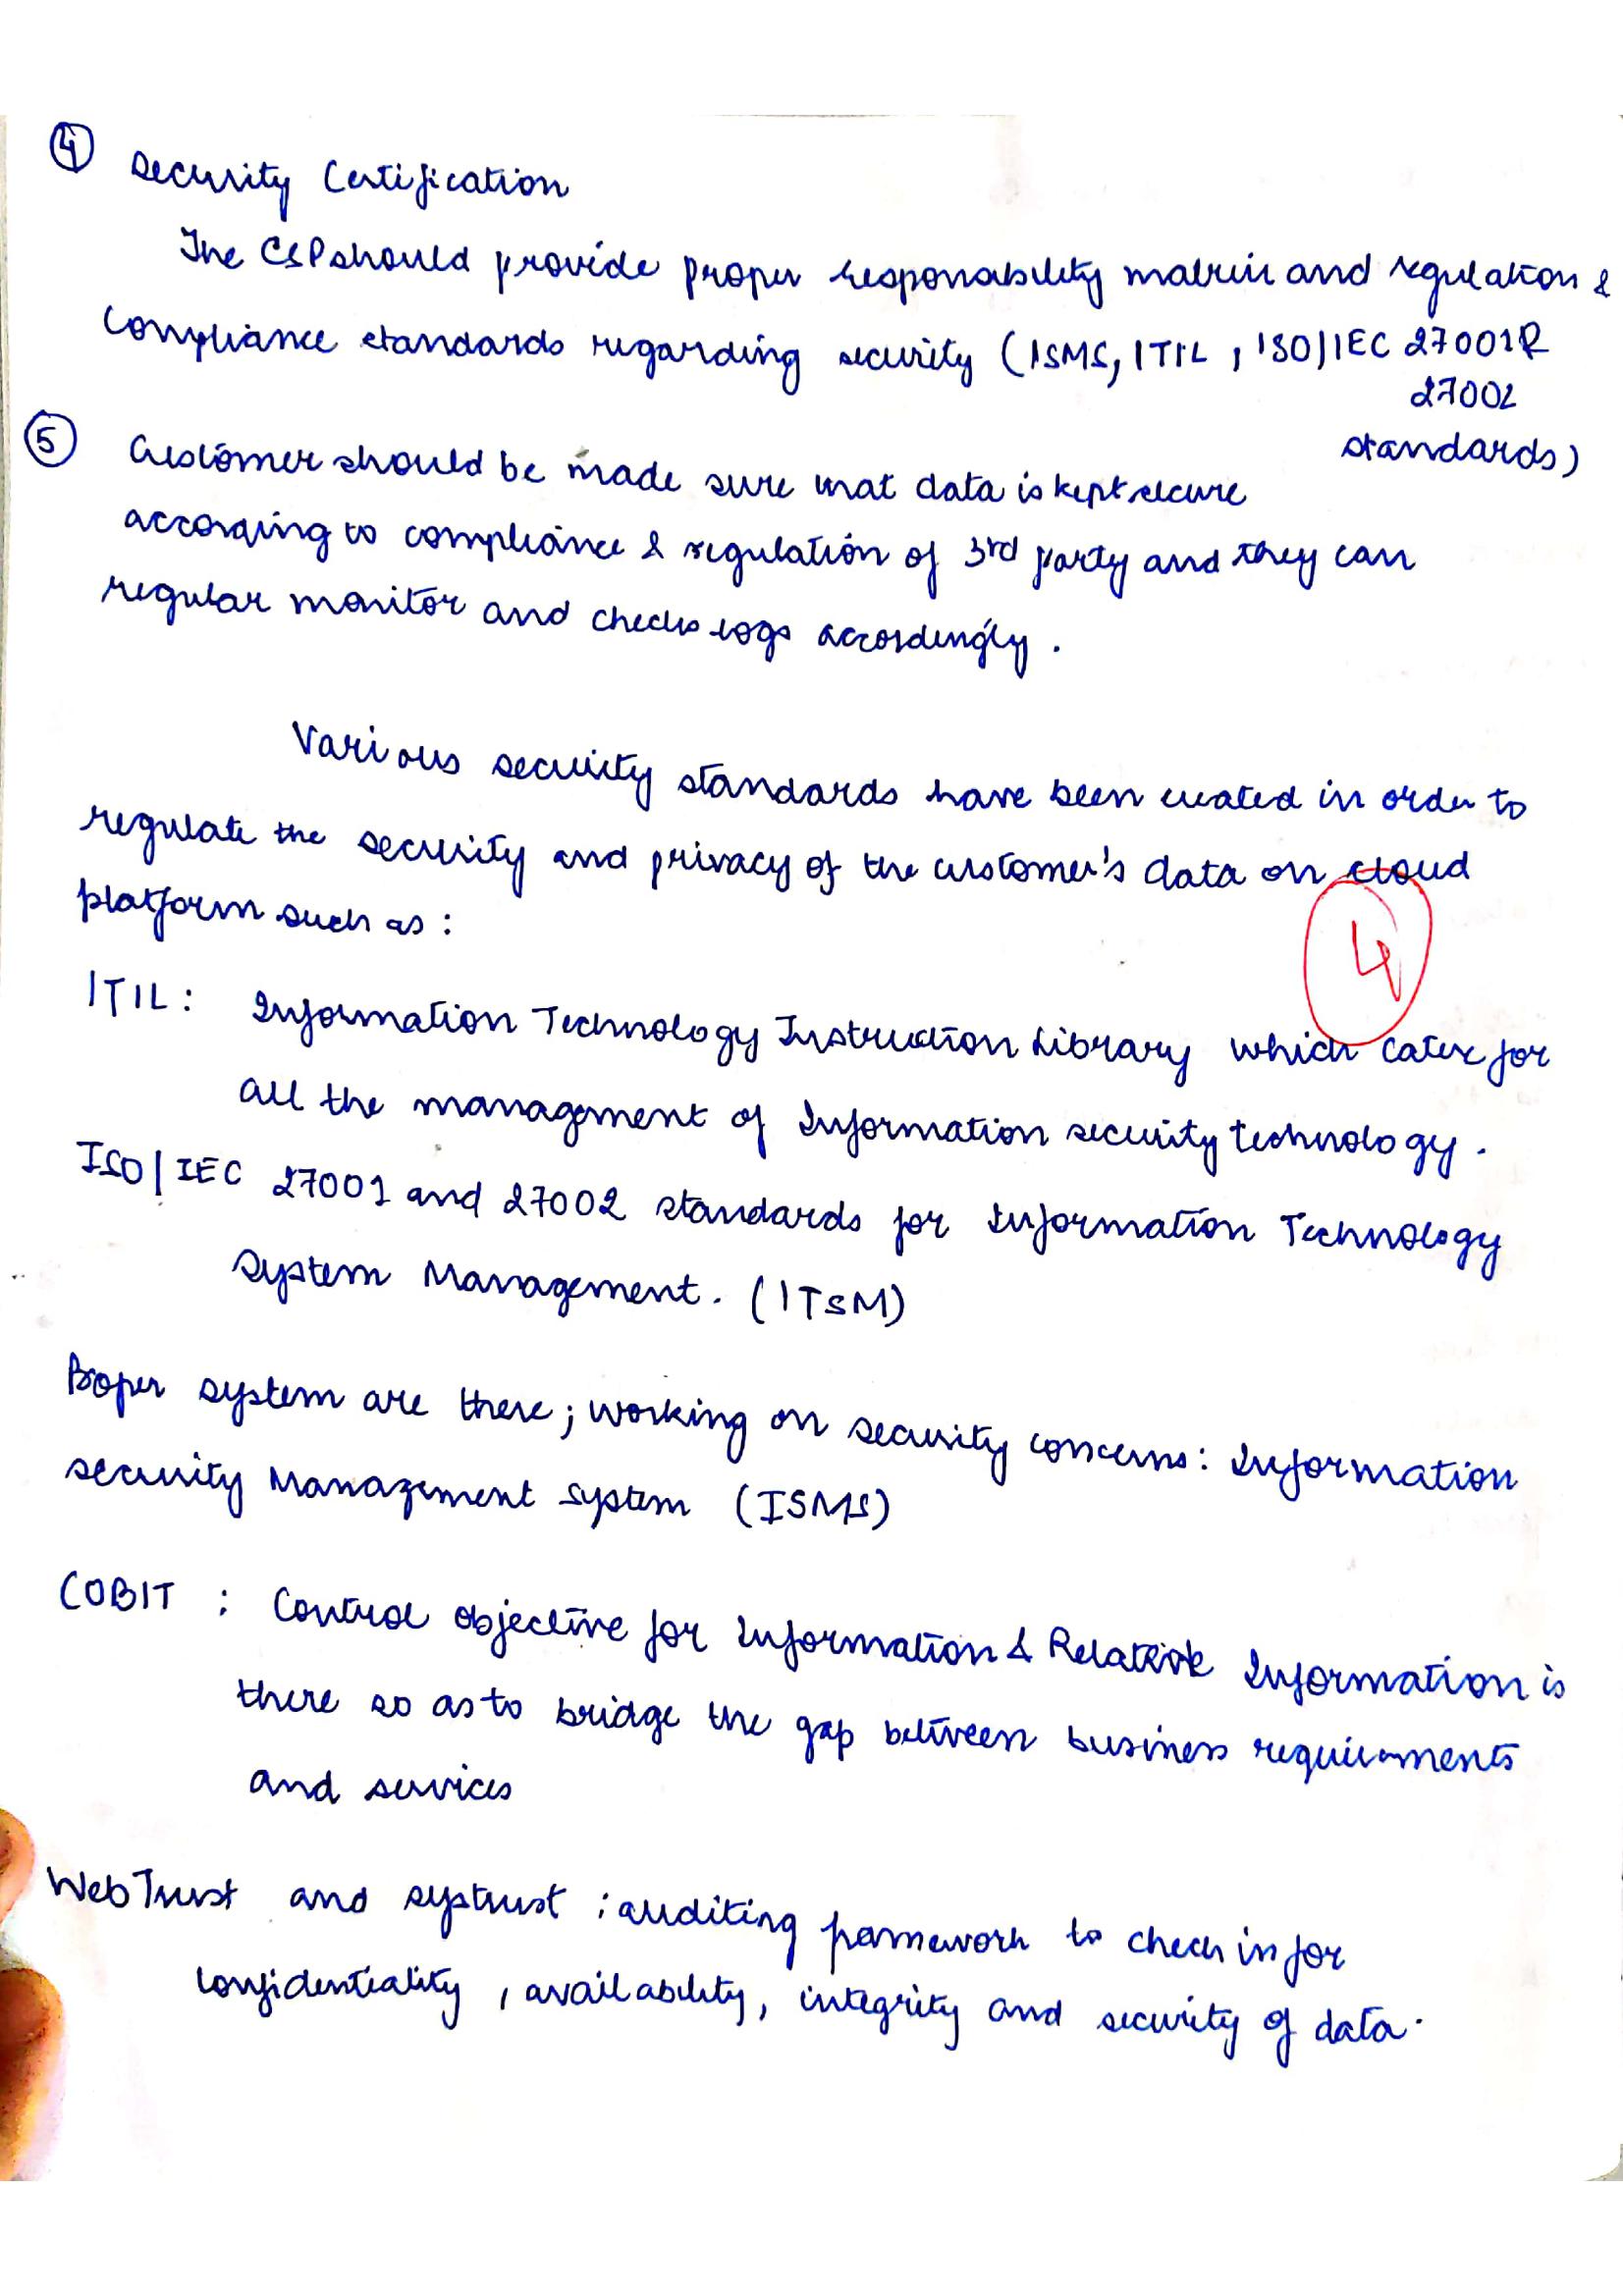 ④ Security Certification
The CSP should provide proper responability matrix and regulation &
compliance standards regarding security (ISMS, ITIL, ISO/IEC 27001 &
27002
standards)
⑤ Customer should be made sure that data is kept secure
according to compliance & regulation of 3rd party and they can
regular monitor and checks logs accordingly.
Various security standards have been created in order to
regulate the security and privacy of the customer's data on cloud
platform such as:
4
ITIL: Information Technology Instruction Library which cater for
all the management of Information security technology.
ISO/IEC 27001 and 27002 standards for Information Technology
System Management. (ITSM)
Proper system are there; working on security concerns: Information
security Management system (ISMS)
COBIT : Control objective for Information & Relative Information is
there so as to bridge the gap between business requirements
and services
WebTrust and systrust : auditing framework to check in for
confidentiality, availability, integrity and security of data.